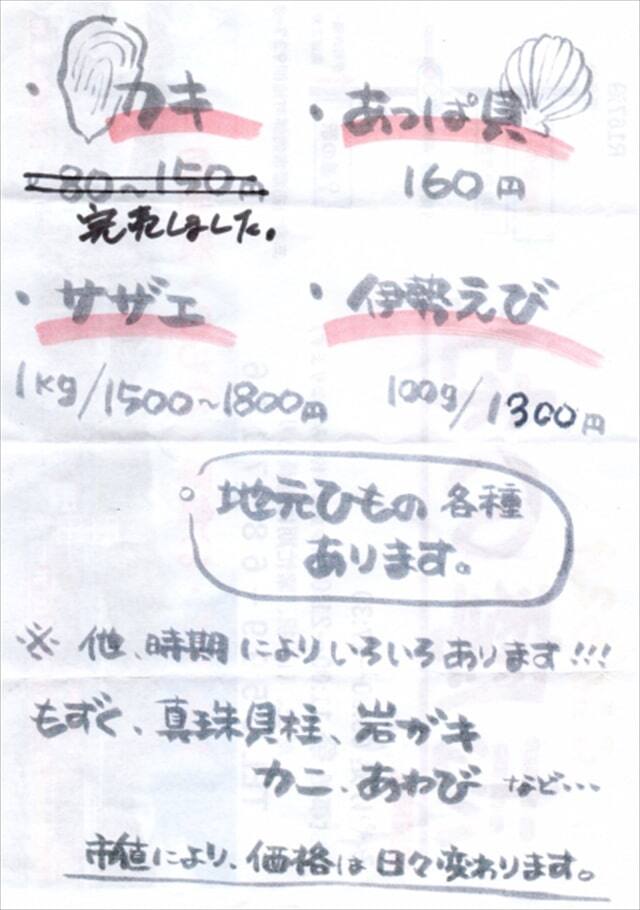 ・カキ
80～150円
完売しました。
・あっぱ貝
160円
・サザエ
1kg/1500～1800円
・伊勢えび
100g/1300円
○地元ひもの各種
あります。
※他、時期によりいろいろあります!!!
もずく、真珠貝柱、岩ガキ
カニ、あわび など・・・
市値により、価格は日々変わります。